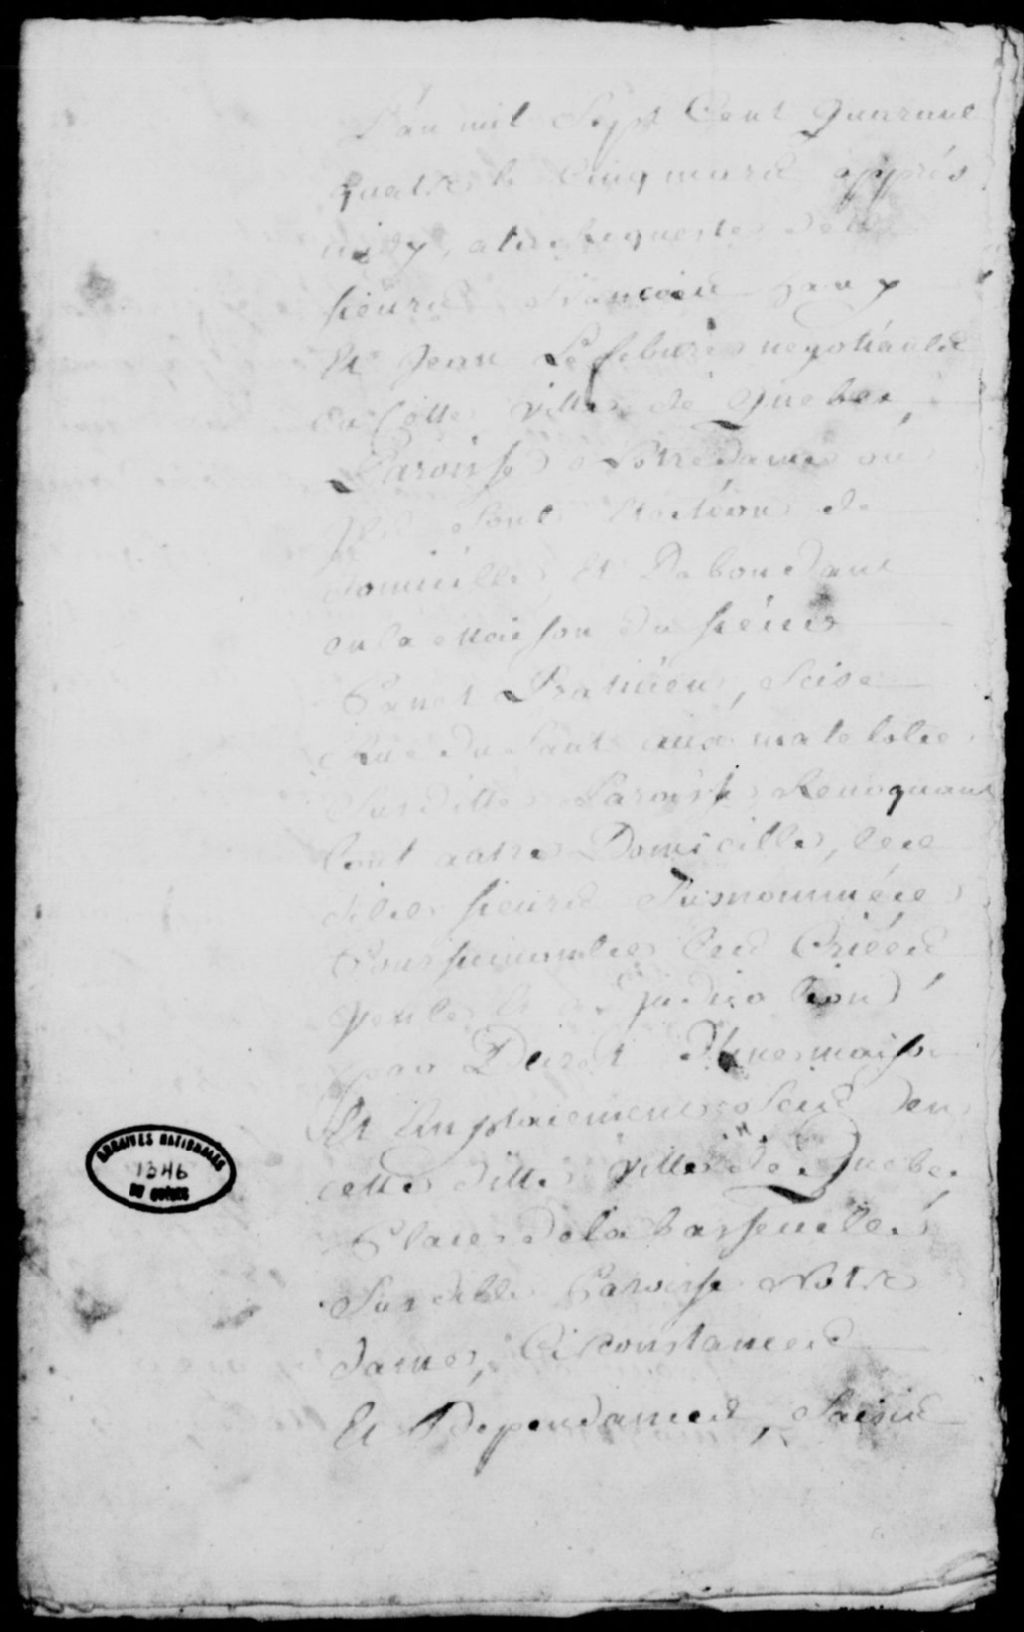 L'an mil Sept Cent Quarante
quatre le Cinq mars appres
midy, a la Requeste des
sieurs François havy
Et Jean Lefebvre negotiants
En Cette Ville de Quebec,
Paroisse Notre Dame où
Ils font Election de
domicille, Et Dabondant
En la Maison du sieur
Panet Praticien, Scise
Rue du Saut aux matelots
Susditte Paroisse, Revoquant
tout autre Domicille, les
dits sieurs Susnommées
Poursuivantes Les Criées
Vente Et adjudication
par Decret D'une maison
Et Emplacement Scis en
cette ditte Ville de Quebec
Place de la basse ville
Susditte Paroisse Notre
dame, Circonstances
Et Dependances, Saisie
ARCHIVES NATIONALES
1346
DU QUÉBEC